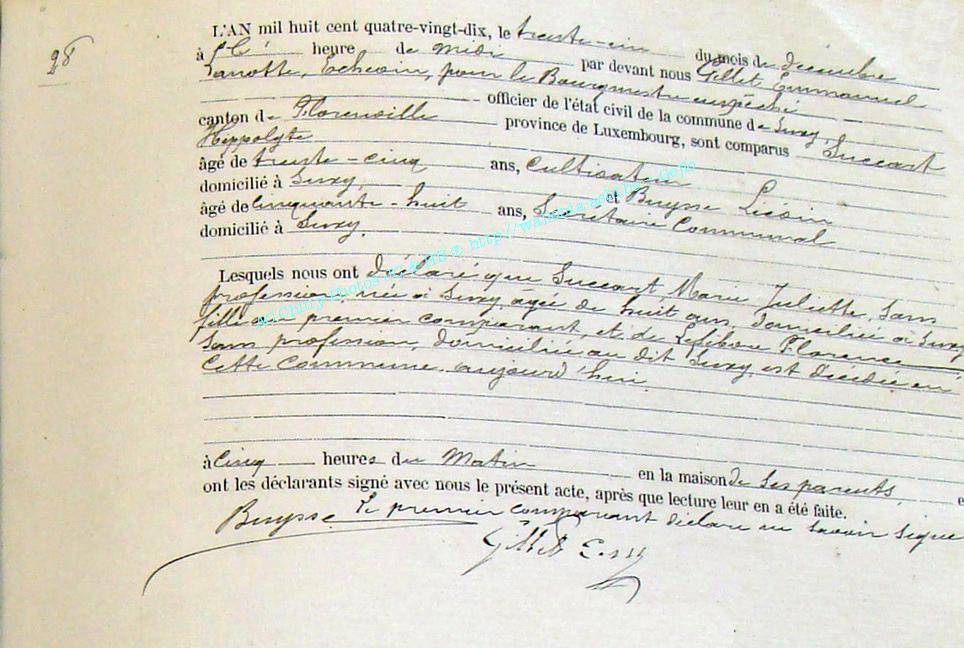 28
L'AN mil huit cent quatre-vingt-dix, le trente-un du mois de décembre
à heure de midi par devant nous Gillet, Emmanuel
Echevin, pour le Bourgmestre empêché
officier de l'état civil de la commune de Suxy,
canton de Florenville province de Luxembourg, sont comparus Succart
Hippolyte
âgé de trente-cinq ans, Cultivateur
domicilié à Suxy, et Buysse
âgé de cinquante-huit ans, Secrétaire Communal
domicilié à Suxy.
Lesquels nous ont déclaré que Succart Marie Juliette, sans
profession, née à Suxy, âgée de huit ans, domiciliée à Suxy
fille du premier comparant, et de Florence
sans profession, domiciliée au dit Suxy, est décédée en
cette commune aujourd'hui
à cinq heures du Matin en la maison de ses parents,
ont les déclarants signé avec nous le présent acte, après que lecture leur en a été faite.
Buysse Le premier comparant déclare ne savoir signe
Gillet